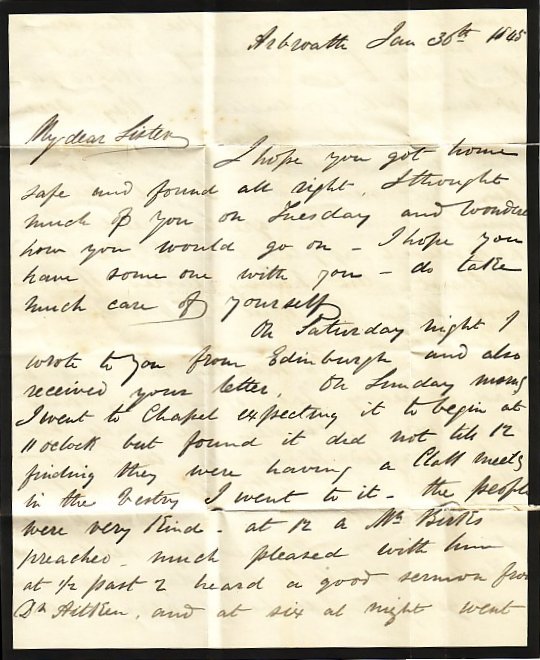 Arbroath Jan 30th 1845
My dear Sister
I hope you got home
safe and found all right. I thought
much of you on Tuesday and wondered
how you would go on - I hope you
have some one with you - do take
much care of yourself
On Saturday night I
wrote to you from Edinburgh and also
received your letter. On Sunday morng
I went to Chapel expecting it to begin at
11 oclock but found it did not till 12
finding they were having a Class meetg
in the Vestry I went to it - the people
were very kind - at 12 a Mr Birks
preached much pleased with him
at 1/2 past 2 heard a good sermon from
Dr Aitken, and at six at night went